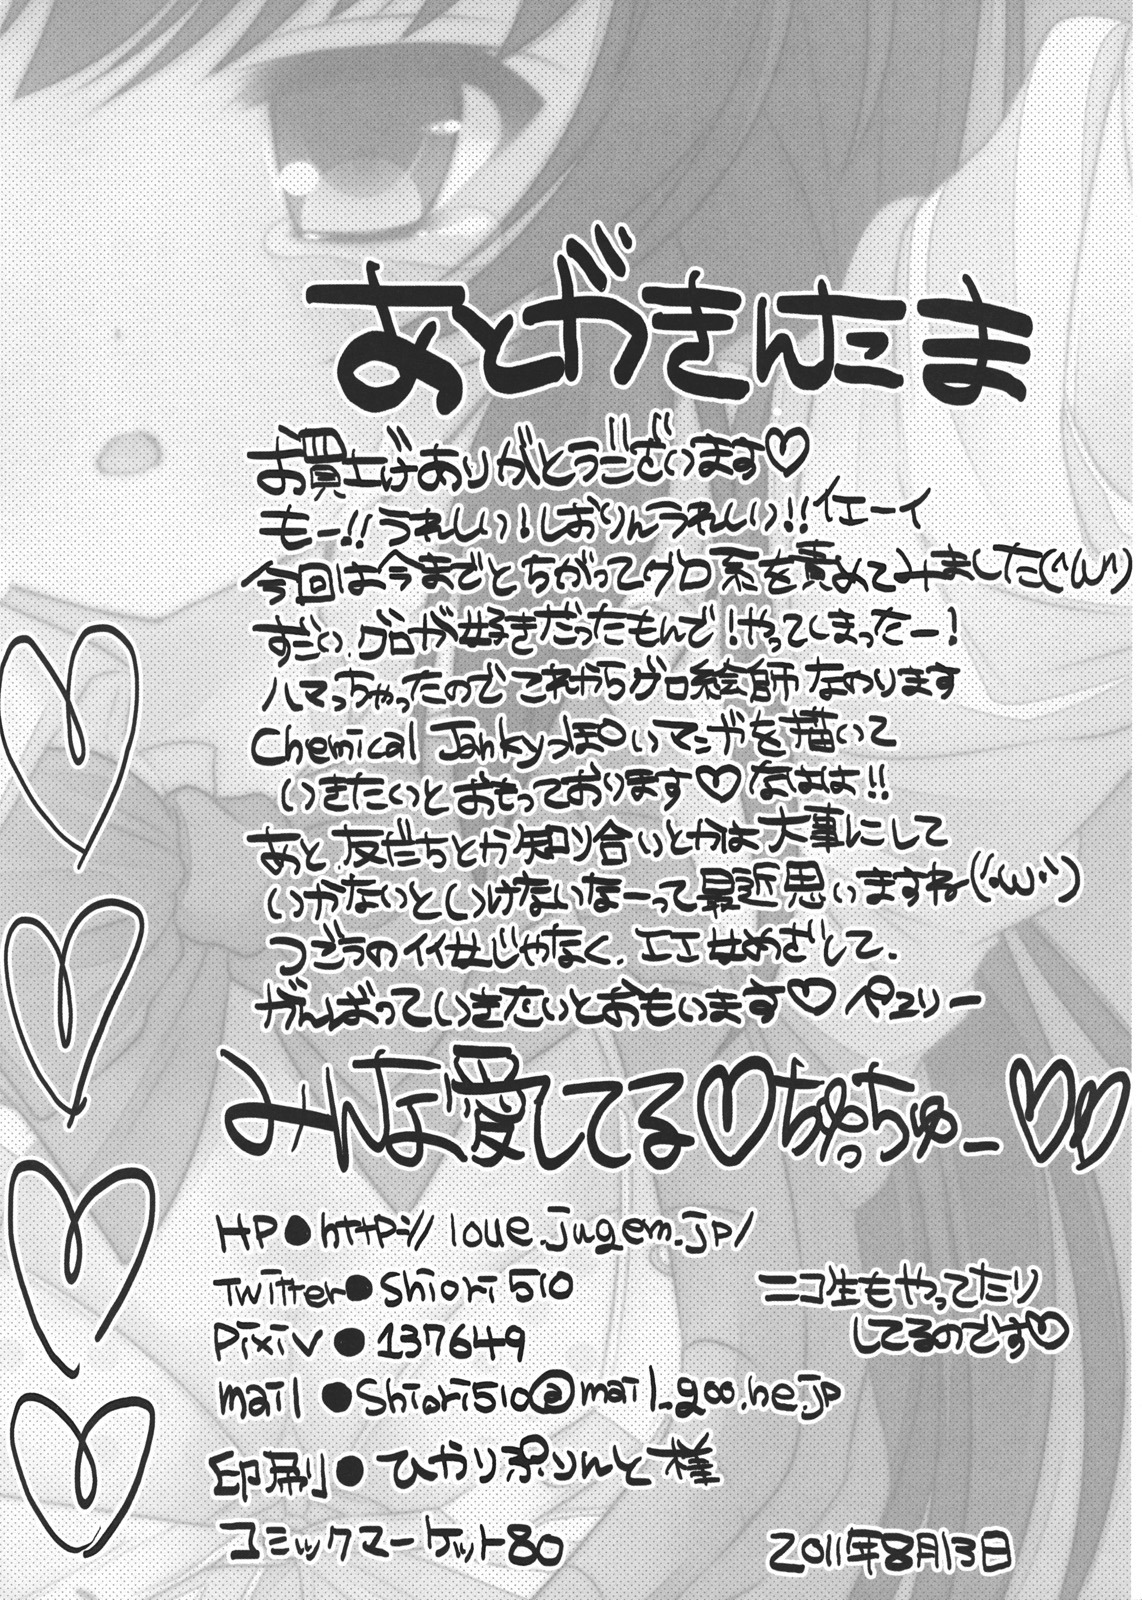 あとがきんたま
お買上げありがとうございます♡
もー!!うれしい!しおりんうれしい!!イエーイ
今回は今までとちがってグロ系を責めてみました(´ω`)
すごい、グロが好きだったもんで!やってしまったー!
ハマっちゃったのでこれからグロ絵師なのります
Chemical Jankyっぽいマンガを描いて
いきたいとおもっております♡なはは!!
あと、友だちとか知り合いとかは大事にして
いかないといけないなーって最近思いますね(´・ω・`)
つごうのイイ女じゃなく、エエ女めざして、
がんばっていきたいとおもいます♡ペュリー
みんな愛してる♡ちゅっちゅー♡♡
HP●http://loue.jugem.jp/
Twitter●Shiori510
Pixiv●137649
mail●Shiori510@mail.goo.ne.jp
ニコ生もやってたり
してるのです♡
印刷●ひかりぷりんと様
コミックマーケット80
2011年8月13日